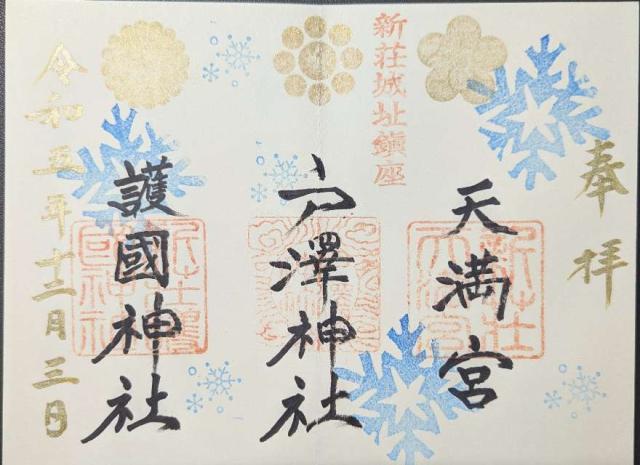 奉拝
天満宮
新荘城址鎮座
戸澤神社
護國神社
令和五年十二月三日